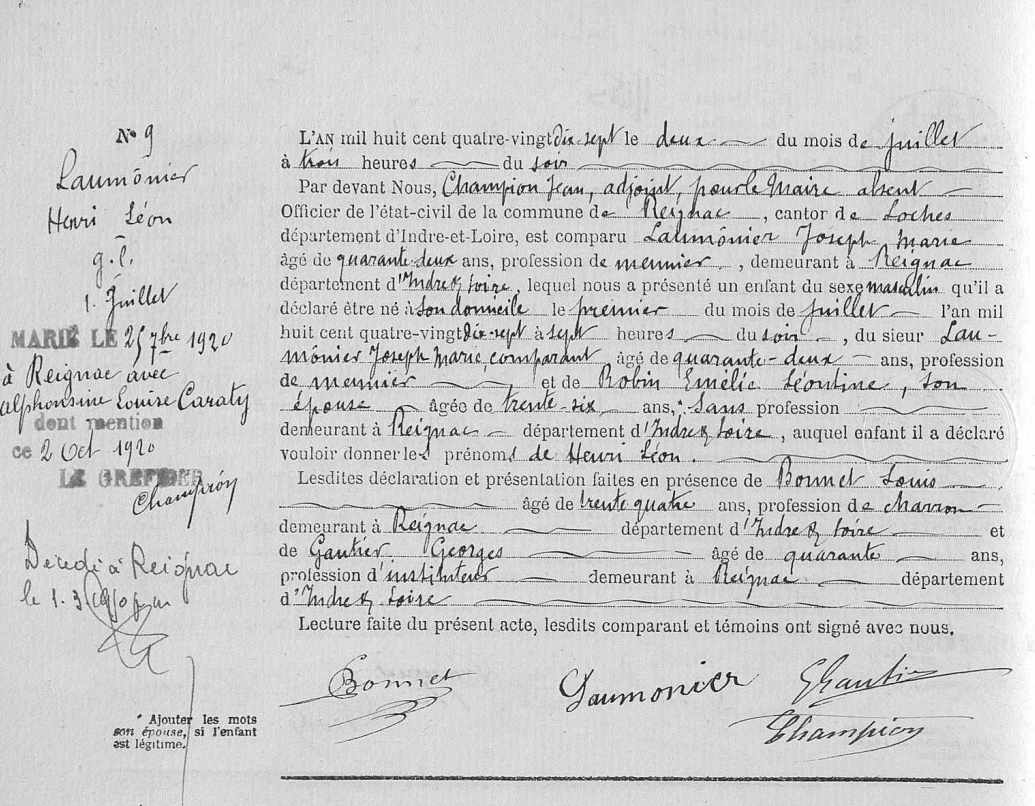 N° 9
Laumônier
Henri Léon
g. l.
1. Juillet
MARIÉ LE 25 7bre 1920
à Reignac avec
alphonsine Louise Caraty
dont mention
ce 2 Oct 1920
LE GREFFIER
Champion
Décédé à Reignac
le 1.3
* Ajouter les mots
son épouse, si l'enfant
est légitime.
L'AN mil huit cent quatre-vingt dix-sept le deux du mois de juillet
à trois heures du soir
Par devant Nous, Champion Jean, adjoint, pour le Maire absent
Officier de l'état-civil de la commune de Reignac, canton de Loches
département d'Indre-et-Loire, est comparu Laumônier Joseph Marie
âgé de quarante-deux ans, profession de meunier, demeurant à Reignac
département d'Indre & Loire, lequel nous a présenté un enfant du sexe masculin qu'il a
déclaré être né à son domicile le premier du mois de juillet l'an mil
huit cent quatre-vingt dix-sept à sept heures du soir, du sieur Lau-
mônier Joseph Marie, comparant, âgé de quarante-deux ans, profession
de meunier, et de Robin Emélie Léontine, son
épouse âgée de trente-six ans,* sans profession
demeurant à Reignac département d'Indre & Loire, auquel enfant il a déclaré
vouloir donner les prénoms de Henri Léon.
Lesdites déclaration et présentation faites en présence de Bonnet Louis
âgé de trente quatre ans, profession de charron
demeurant à Reignac département d'Indre & Loire et
de Gautier Georges âgé de quarante ans,
profession d'instituteur demeurant à Reignac département
d'Indre & Loire
Lecture faite du présent acte, lesdits comparant et témoins ont signé avec nous.
Bonnet Laumonier GGautier
Champion